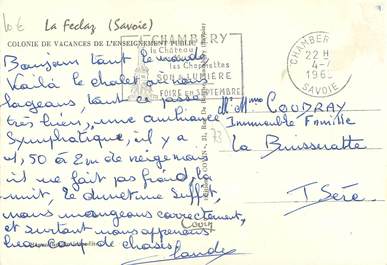 La Feclaz (Savoie)
COLONIE DE VACANCES DE L'ENSEIGNEMENT PUBLIC
Bonjour tout le monde
Voilà le chalet où nous
logeons, tout se passe
très bien, une ambiance
symphatique, il y a
1,50 à 2m de neige mais
il ne fait pas froid la
nuit, le duvet me suffit,
nous mangeons correctement,
et surtout nous apprenons
beaucoup de choses.
Claude
CHAMBERY
le Château
les Charmettes
SON & LUMIÈRE
FOIRE EN SEPTEMBRE
CHAMBERY
22 H
4-
196
SAVOIE
Mr Mme COUDRAY
Immeuble Famille
La Buisseratte
Isère